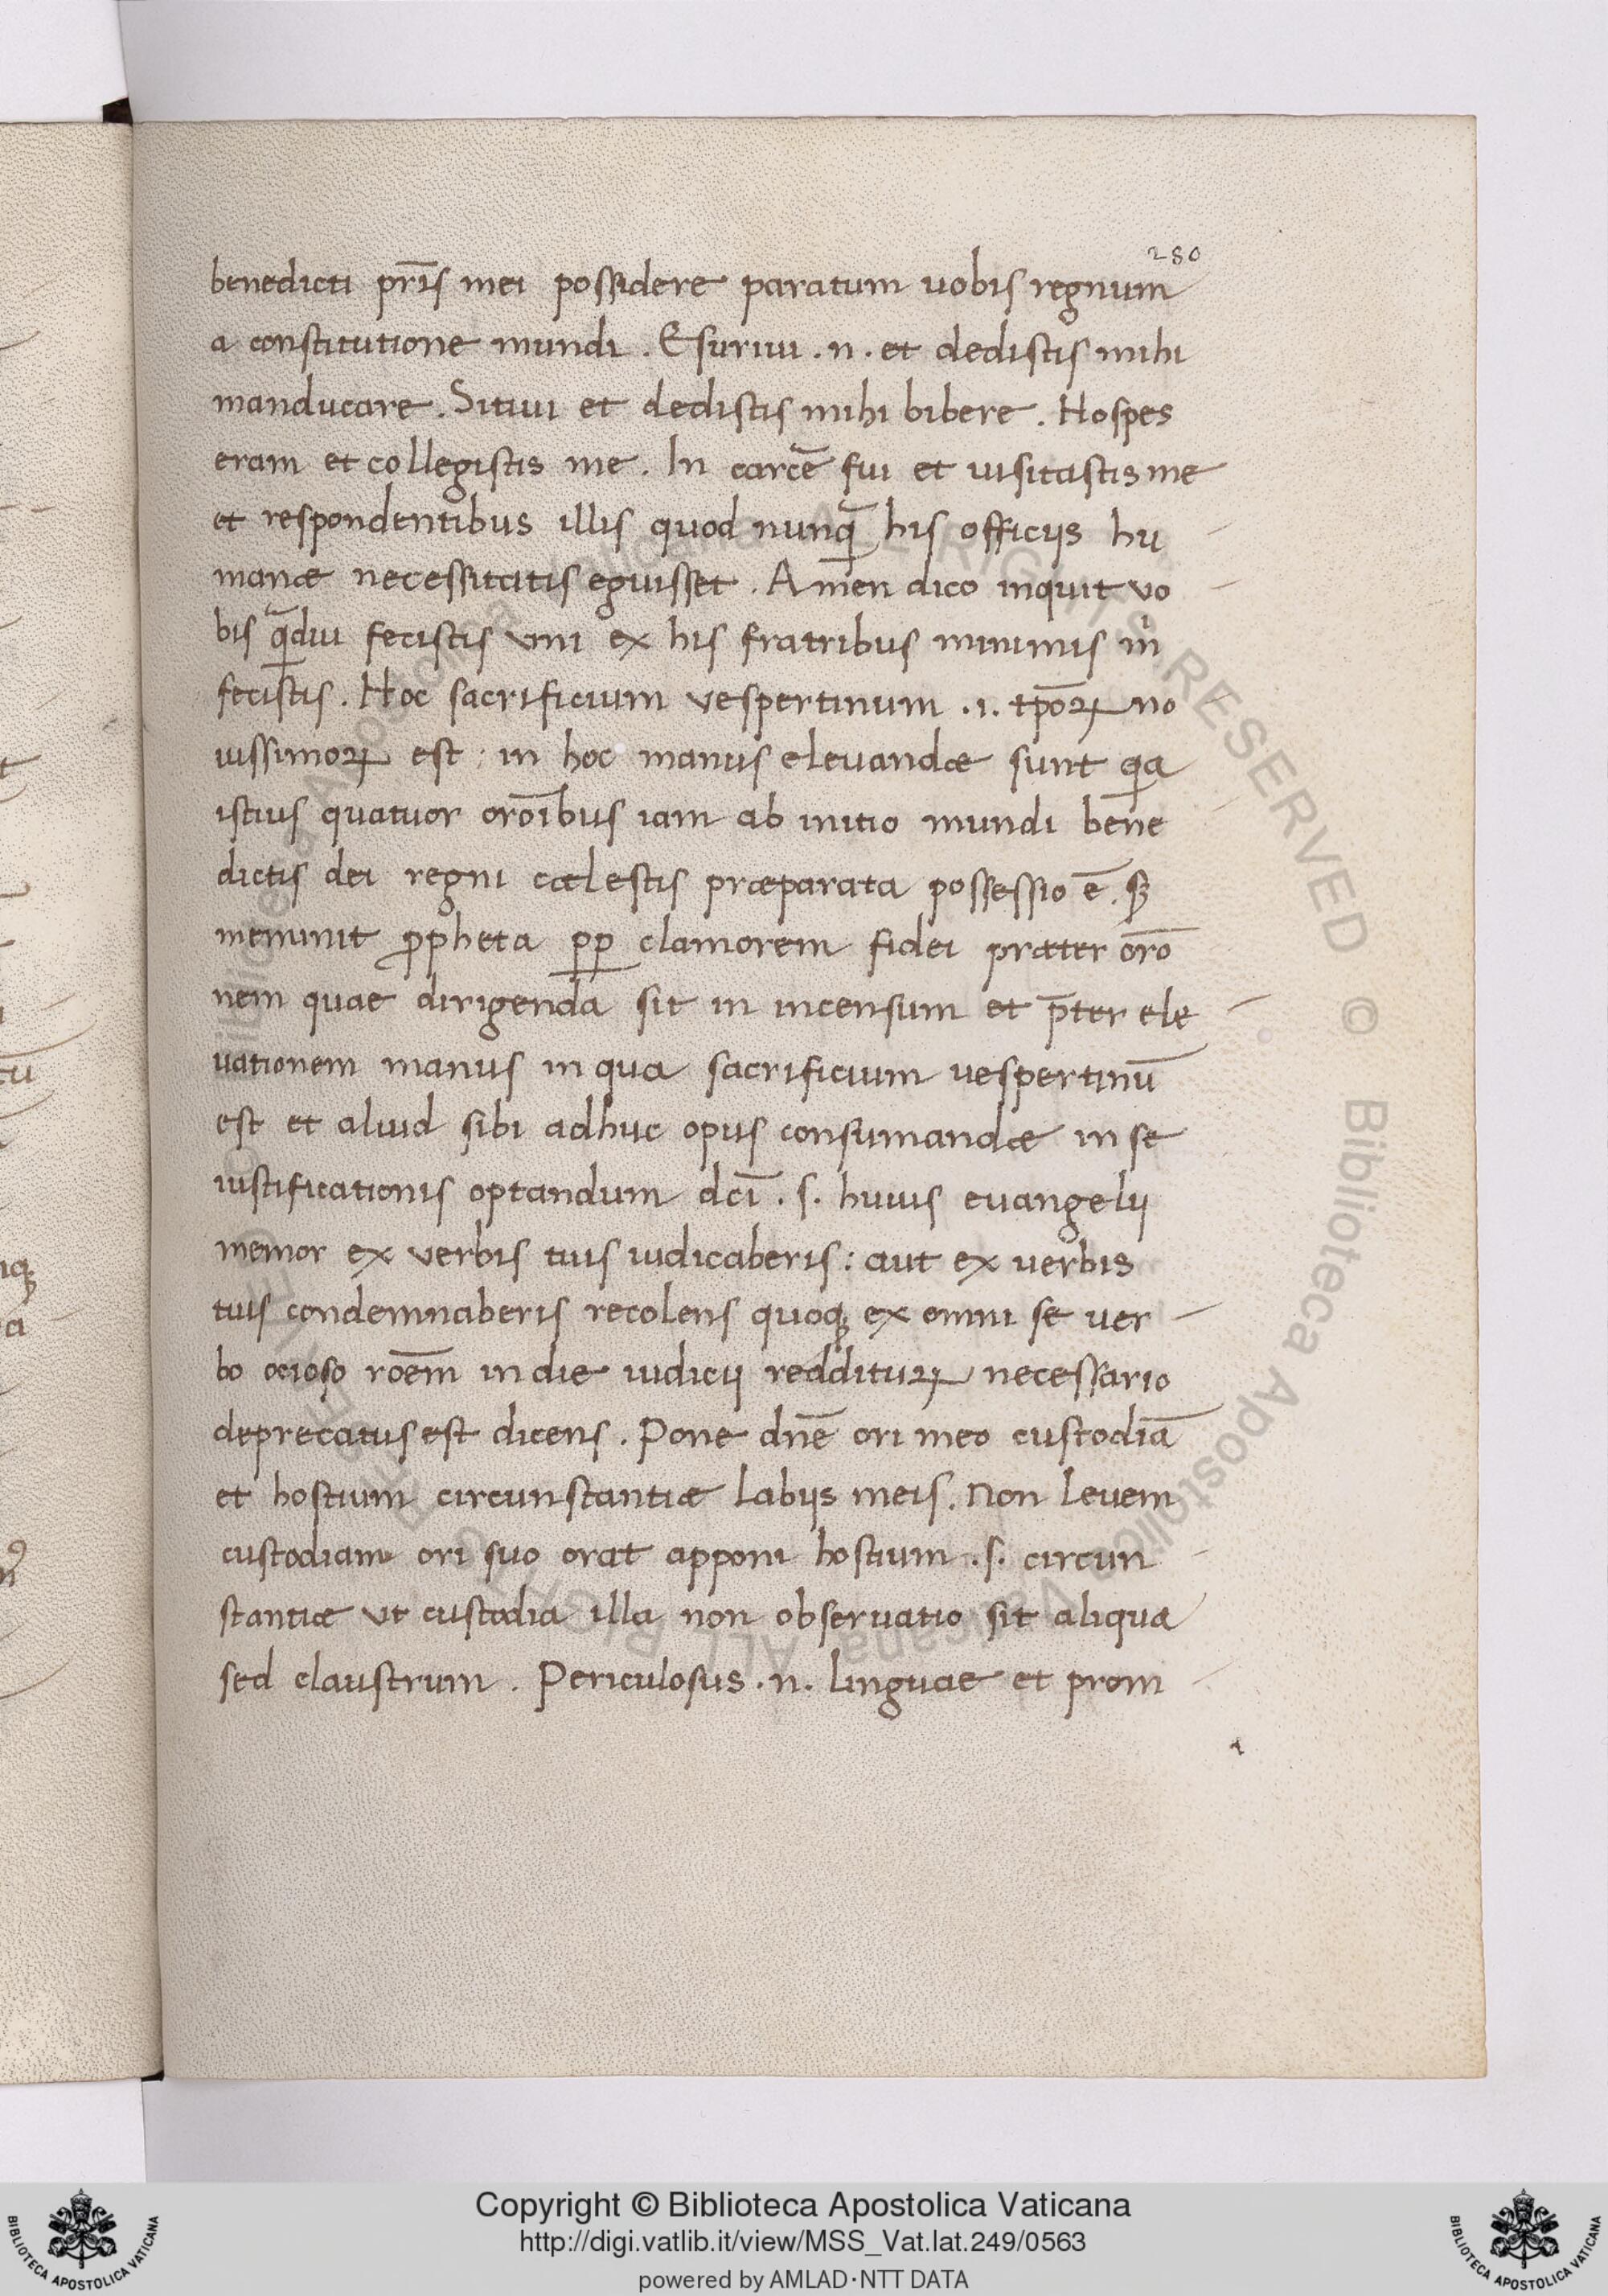 280
benedicti pr̄is mei possidere paratum uobis regnum
a constitutione mundi . Esuriui . n . et dedistis mihi
manducare . Sitiui et dedistis mihi bibere . Hospes
eram et collegistis me . In carcē fui et uisitastis me
et respondentibus illis quod nunq̄ his officijs hu
manæ necessitatis eguisset . Amen dico inquit vo
bis q̄diu fecistis vni ex his fratribus minimis m̄
fecistis . Hoc sacrificium vespertinum . i . tp̄oꝝ no
uissimoꝝ est : in hoc manus eleuandæ sunt qa
istius quatuor orōibus iam ab initio mundi bene
dictis dei regni cælestis præparata possessio ē . Sꝫ
meminit ꝓpheta ꝓp clamorem fidei præter orō
nem quae dirigenda sit in incensum et p̄ter ele
uationem manus in qua sacrificium uespertinū
est et aliud sibi adhuc opus consumandæ in se
iustificationis optandum dcī . s . huius euangelij
memor ex verbis tuis iudicaberis : aut ex uerbis
tuis condemnaberis recolens quoqꝫ ex omni se uer
bo ocioso rōem in die iudicij reddituꝝ necessario
deprecatus est dicens . Pone dn̄e ori meo custodiā
et hostium circunstantiæ labijs meis . Non leuem
custodiam ori suo orat apponi hostium . s . circun
stantiæ vt custodia illa non obseruatio sit aliqua
sed claustrum . Periculosus . n . linguae et prom
Copyright © Biblioteca Apostolica Vaticana
http://digi.vatlib.it/view/MSS_Vat.lat.249/0563
powered by AMLAD·NTT DATA
BIBLIOTECA APOSTOLICA VATICANA
BIBLIOTECA APOSTOLICA VATICANA